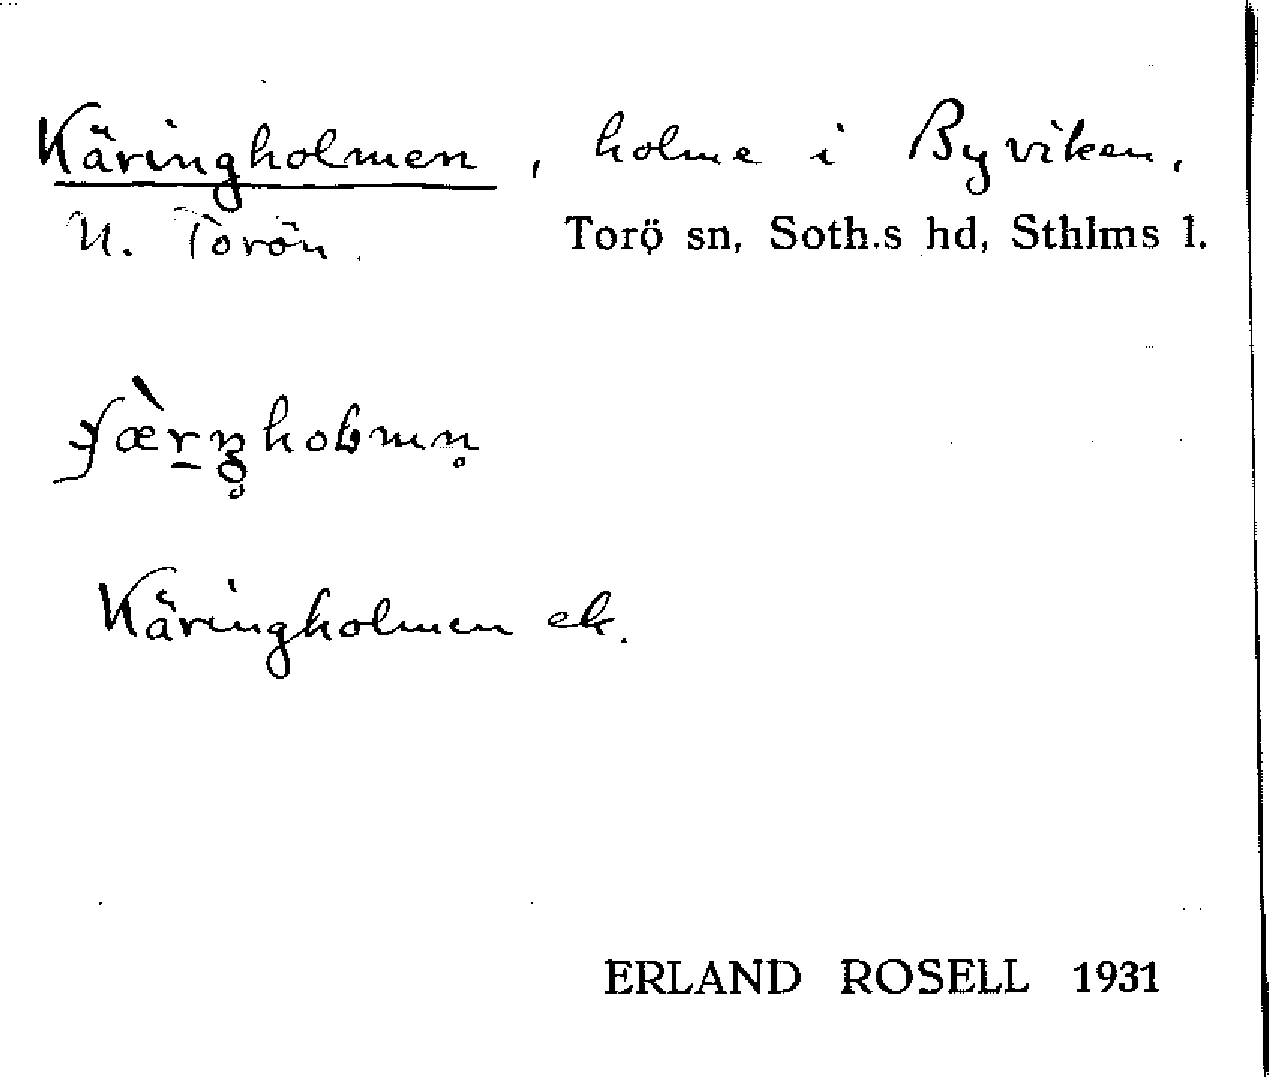 Käringholmen, holme i Byviken,
N. Torön. Torö sn, Soth.s hd, Sthlms l.
Käringholmen ek.
ERLAND ROSELL 1931